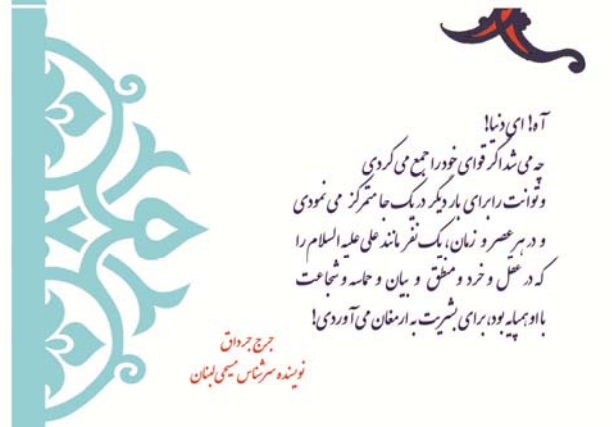 آه! ای دنیا!
چه می شد اگر قوای خود را جمع می کردی
و توانت را برای بار دیگر در یک جا متمرکز می نمودی
و در هر عصر و زمان، یک نفر مانند علی علیه السلام را
که در عقل و خرد و منطق و بیان و حماسه و شجاعت
با او همپایه بود، برای بشریت به ارمغان می آوردی!
جرج جرداق
نویسنده سرشناس مسیحی لبنان